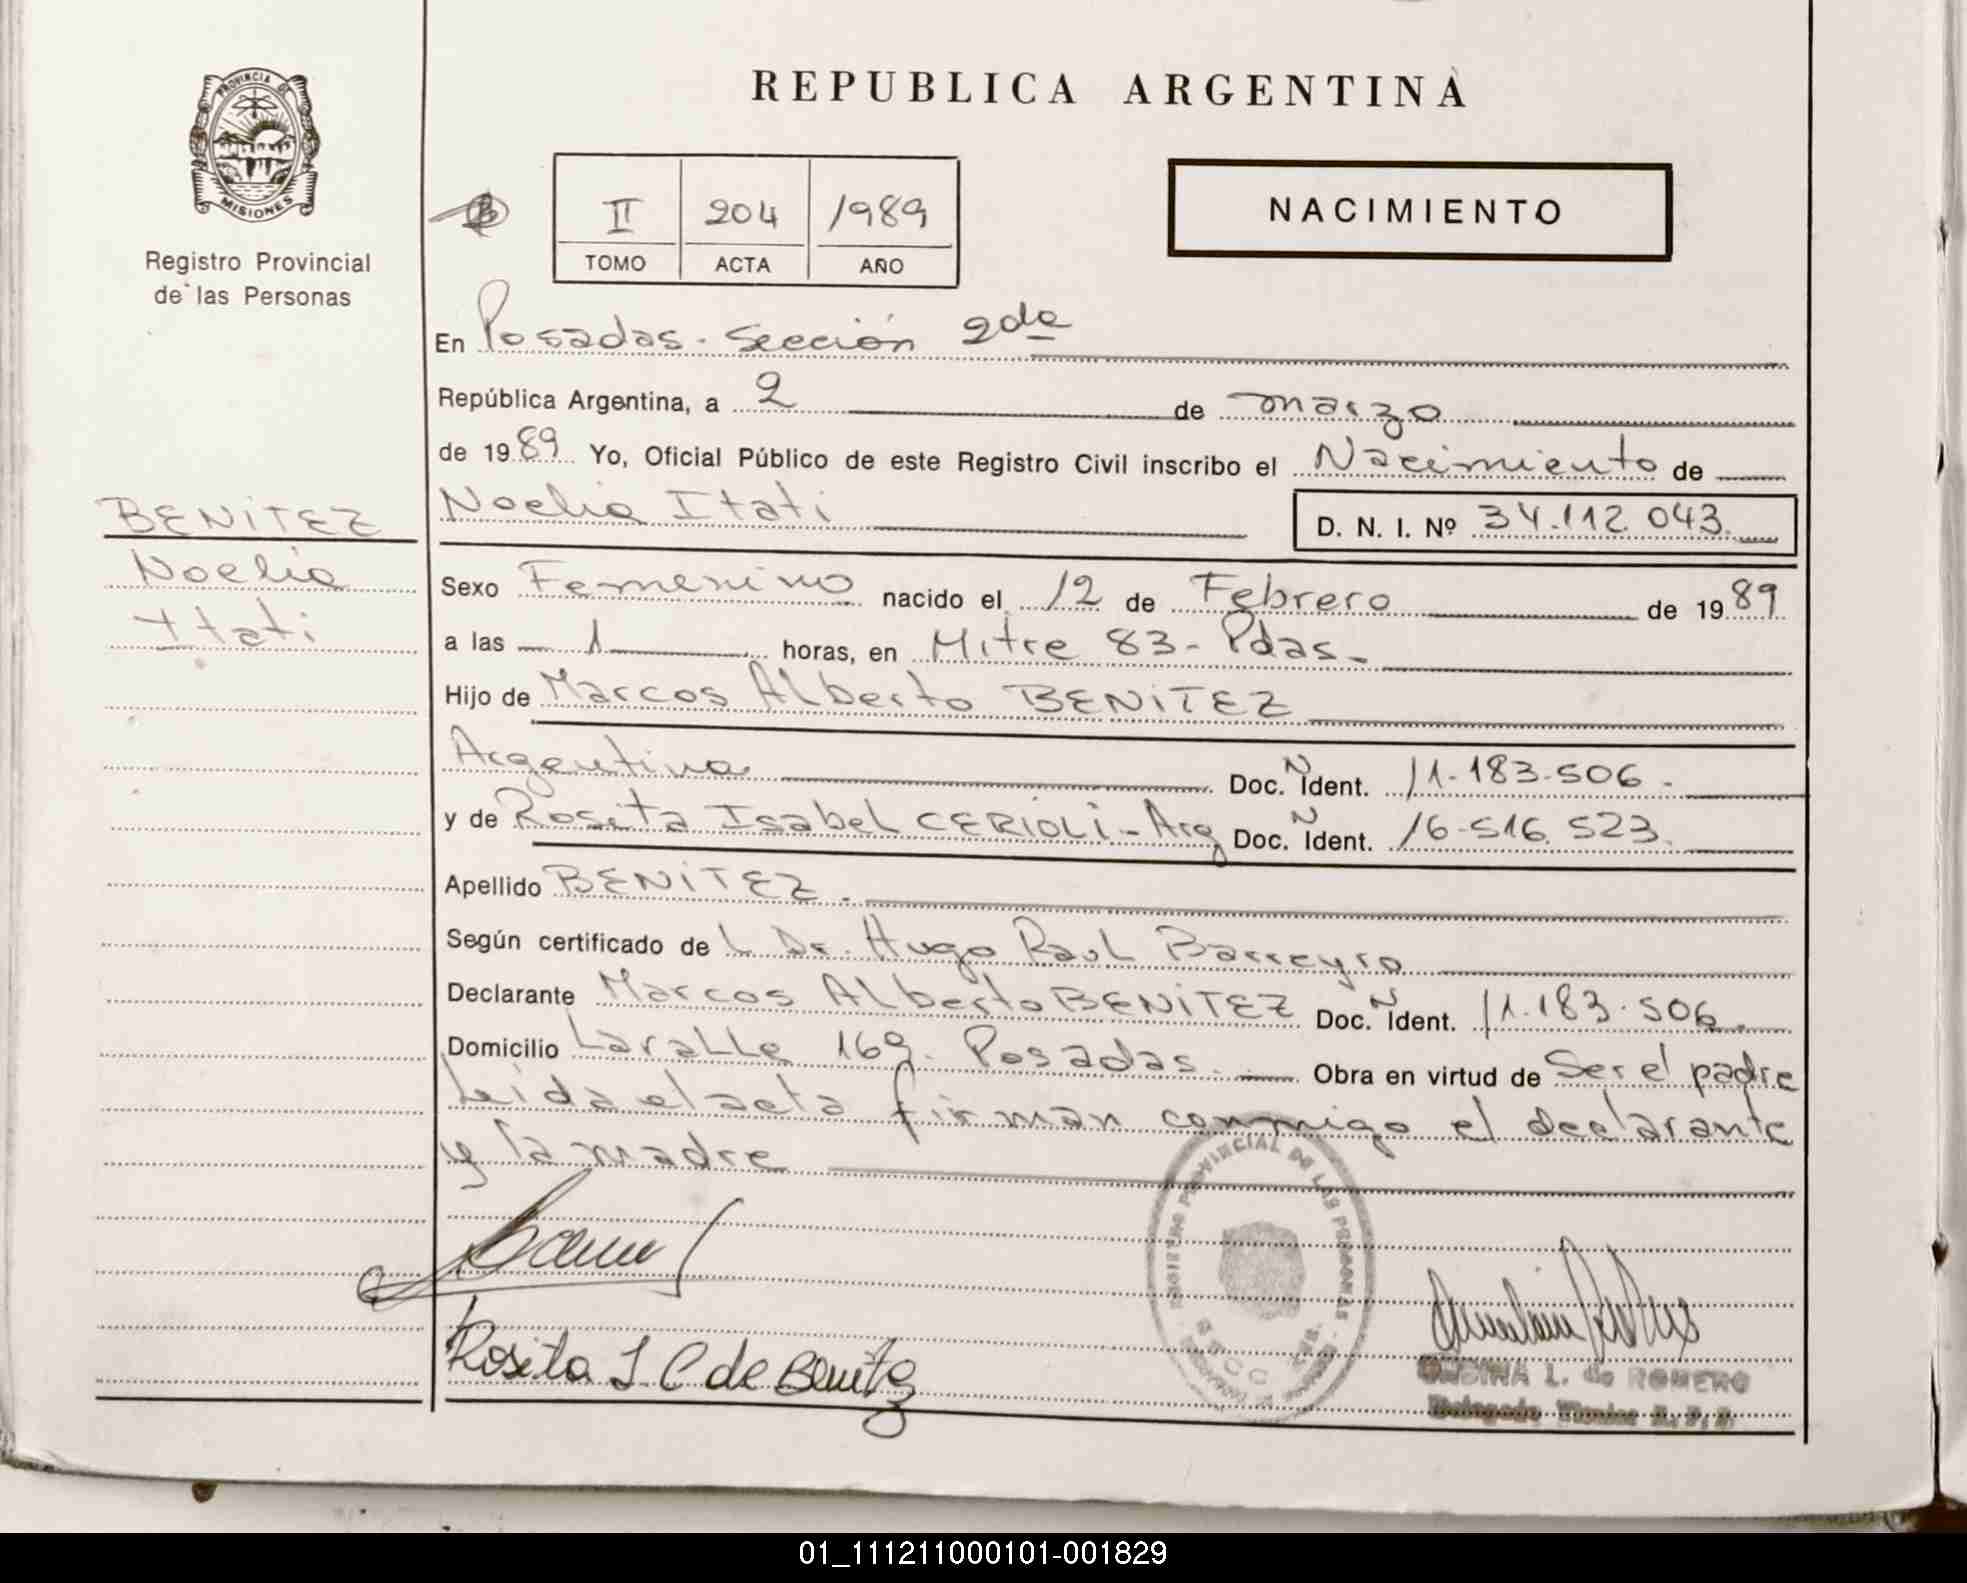 REPUBLICA ARGENTINA
PROVINCIA DE
MISIONES
Registro Provincial
de las Personas
II 204 1989
TOMO ACTA AÑO
NACIMIENTO
En Posadas. Sección 2da
República Argentina, a 2 de marzo
de 1989 Yo, Oficial Público de este Registro Civil inscribo el Nacimiento de
Noelia Itati D. N. I. Nº 34.112.043.
BENITEZ
Noelia
Itati
Sexo Femenino nacido el 12 de Febrero de 1989
a las 1 horas, en Mitre 83- Pdas.
Hijo de Marcos Alberto BENITEZ
Argentina Doc. N Ident. 11.183.506.
y de Rosita Isabel CERIOLI - Arg Doc. N Ident. 16.516.523.
Apellido BENITEZ.
Según certificado de L Dr. Hugo Raul Barreyro
Declarante Marcos Alberto BENITEZ Doc. N Ident. 11.183.506.
Domicilio Lavalle 169. Posadas. Obra en virtud de Ser el padre
Leida el acta firman conmigo el declarante
y la madre
REGISTRO PROVINCIAL DE LAS PERSONAS
Rosita I C de Benitez
L. de ROMERO
01_111211000101-001829